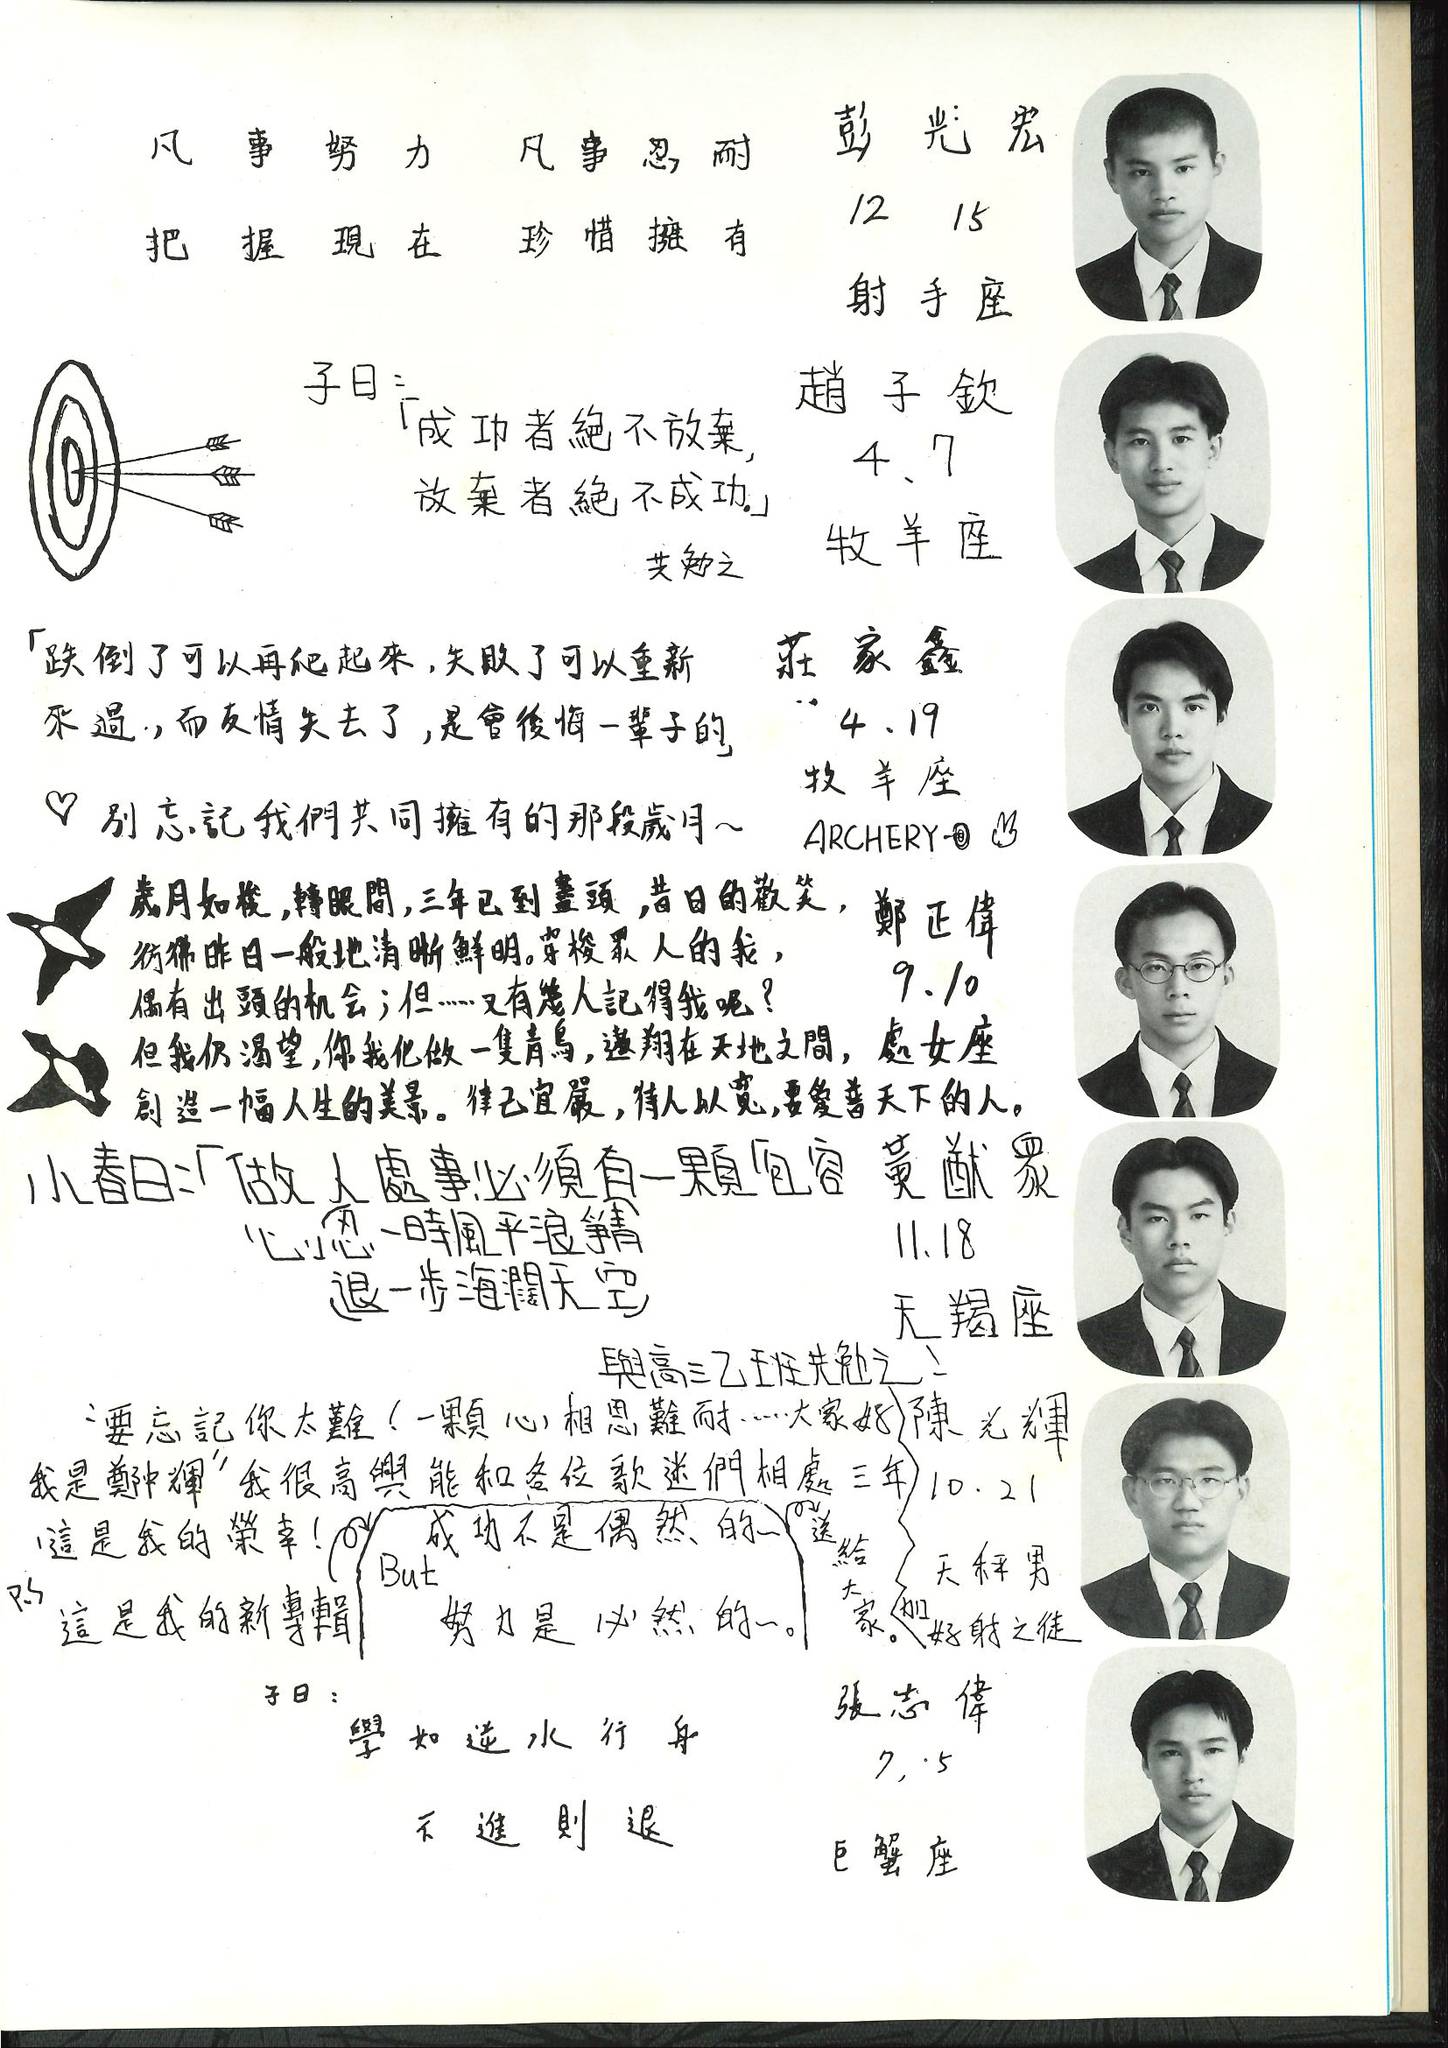 凡事努力 凡事忍耐
把握現在 珍惜擁有
彭光宏
12 15
射手座
子曰：
「成功者絕不放棄,
放棄者絕不成功。」
共勉之
趙子欽
4、7
牧羊座
「跌倒了可以再爬起來，失敗了可以重新
來過.，而友情失去了，是會後悔一輩子的」
♡ 別忘記我們共同擁有的那段歲月～
莊家鑫
4、19
牧羊座
ARCHERY
歲月如梭，轉眼間，三年已到盡頭，昔日的歡笑，
彷彿昨日一般地清晰鮮明。穿梭眾人的我，
偶有出頭的机会；但……又有幾人記得我呢？
但我仍渴望，你我化做一隻青鳥，遨翔在天地之間，
創造一幅人生的美景。律己宜嚴，待人以寬，要愛普天下的人。
鄭正偉
9.10
處女座
小春曰：「做人處事必須有一顆寬容
心(忍一時風平浪靜)
(退一步海闊天空)
與高三乙班共勉之！
黃猷眾
11.18
天羯座
要忘記你太難！一顆心相思難耐……大家好
我是鄭中輝" 我很高興能和各位歌迷們相處三年
這是我的榮幸！
P.S 這是我的新專輯
成功不是偶然的～
But
努力是必然的～。
送給大家。
陳光輝
10.21
天秤男
加
好射之徒
子曰：
學如逆水行舟
不進則退
張志偉
7,.5
巨蟹座